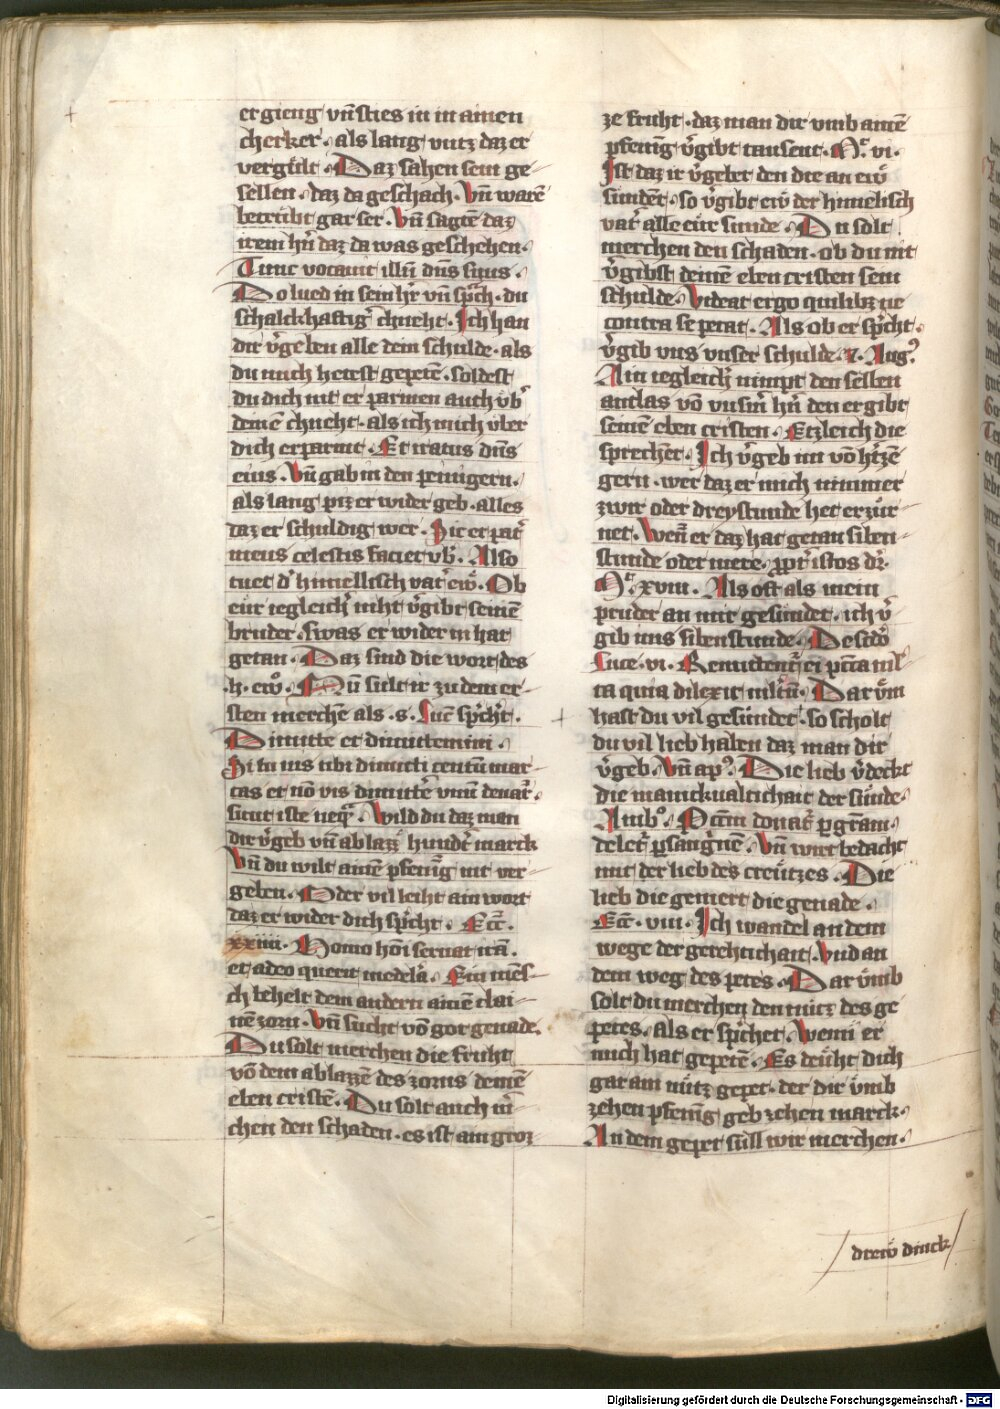 er gieng vn̄ sties in in ainen
cherker · als lang vntz daz er
vergült · Daz sahen sein ge-
sellen · daz da geschach · Vn̄ warē
betrübt gar ser · Vn̄ sagtē daz
irem hr̄n daz da was geschehen ·
Tunc vocauit illū dn̄s suus ·
Do lued in sein hr̄ vn̄ sp̄ch · du
schalckhaftig̾ chneht · Ich han
dir v̾geben alle dein schulde · als
du mich hetest gepetē · soldest
du dich nit er parmen auch vb̾
deinē chneht · als ich mich vber
dich erparmt · Et iratus dn̄s
eius · Vn̄ gab in den peinigern ·
als lang piz er wider geb · alles
daz er schuldig wer · Sic et pat̾
meus celestis faciet vb̾ · Also
tuet d̾ himelisch vat̾ ew̾ · Ob
eür iegleich̾ niht v̾gibt seinē
bruder · swas er wider in hat
getan · Daz sind die wort des
.h. ew̾ · Nū sult ir zu dem er-
sten merchē als · s · Luc̄ sp̄cht ·
Dimitte et dimittemini ·
Si tu uis tibi dimitti centū mar-
cas et nō vis dimittē vnū denar̾ ·
sicut iste neq̄ · Wild du daz man
dir v̾geb vn̄ ablazz hundt̾ marck
Vn̄ du wilt ainē pfennig nit ver-
geben · Oder vil leiht ain wort
daz er wider dich sp̄cht · Ecc̄ ·
xxiiii · Homo hōi seruat irā ·
et a deo querit medelā · Ein mēs-
ch behelt dem andern ainē clai-
nē zorn · Vn̄ sucht vō got genade ·
Du solt merchen die fruht
vō dem ablazzē des zorns deinē
eben cristē · Du solt auch m̾-
chen den schaden · es ist ain groz-
ze fruht · daz man dir vmb ainē
pfenig v̾gibt tausent · Mͬ vi ·
Ist daz ir v̾gebet den die an ew̾
sündēt · so v̾gibt ew̾ der himelisch
vat̾ alle eür sunde · Du solt
merchen den schaden · ob du nit
v̾gibst deinē eben cristen sein
schulde · Videat ergo quilibz ne
contra se petat · Als ob er sp̄cht ·
v̾gib vns vnser schulde · ⁊ · Aug̾
Ain iegleich̾ nimpt den sellen
antlas vō vnsm̄ hn̄ den er gibt
seinē eben cristen · Etzleich die
sprechēt · Ich v̾geb im vō h̾tzē
gern · wer daz er mich nimmer
zwir oder dreystunde het erzür-
net · Wen̄ er daz hat getan siben-
stunde oder mere · ꝓpt̾ istos dr̄ ·
Mͬ xviii · Als oft als mein
pruder an mir gesündet · ich v̾-
gib ims sibenstunde · De sc̄do
Luce · vi · Remittent̾ ei pcc̄a ml̾-
ta quia dilexit ml̾tū · Dar v̈m
hast du vil gesündet · so scholt
du vil lieb haben daz man dir
v̾geb · Vn̄ ap̾ · Die lieb v̾deckt
die manickualtichait der sünde ·
Amb̾o · Peccm̄ donat̾ ꝑ gr̄am ·
delet̾ ꝑ sangnē · Vn̄ wirt bedacht
mit der lieb des creützes · Die
lieb die gemert die genade ·
Ecc̄ · viii · Ich wandel an dem
wege der gerehtichait · Vnd an
dem weg des petes · Dar v̈mb
solt du merchen den nütz des ge-
petes · als er sp̄chet · Wenn er
mich hat gepetē · Es deüht dich
gar ain nütz gepet · der dir v̈mb
zehen pfenig geb zehen marck ·
An dem gepet süll wir merchen ·
drew̾ dinck
Digitalisierung gefördert durch die Deutsche Forschungsgemeinschaft - DFG